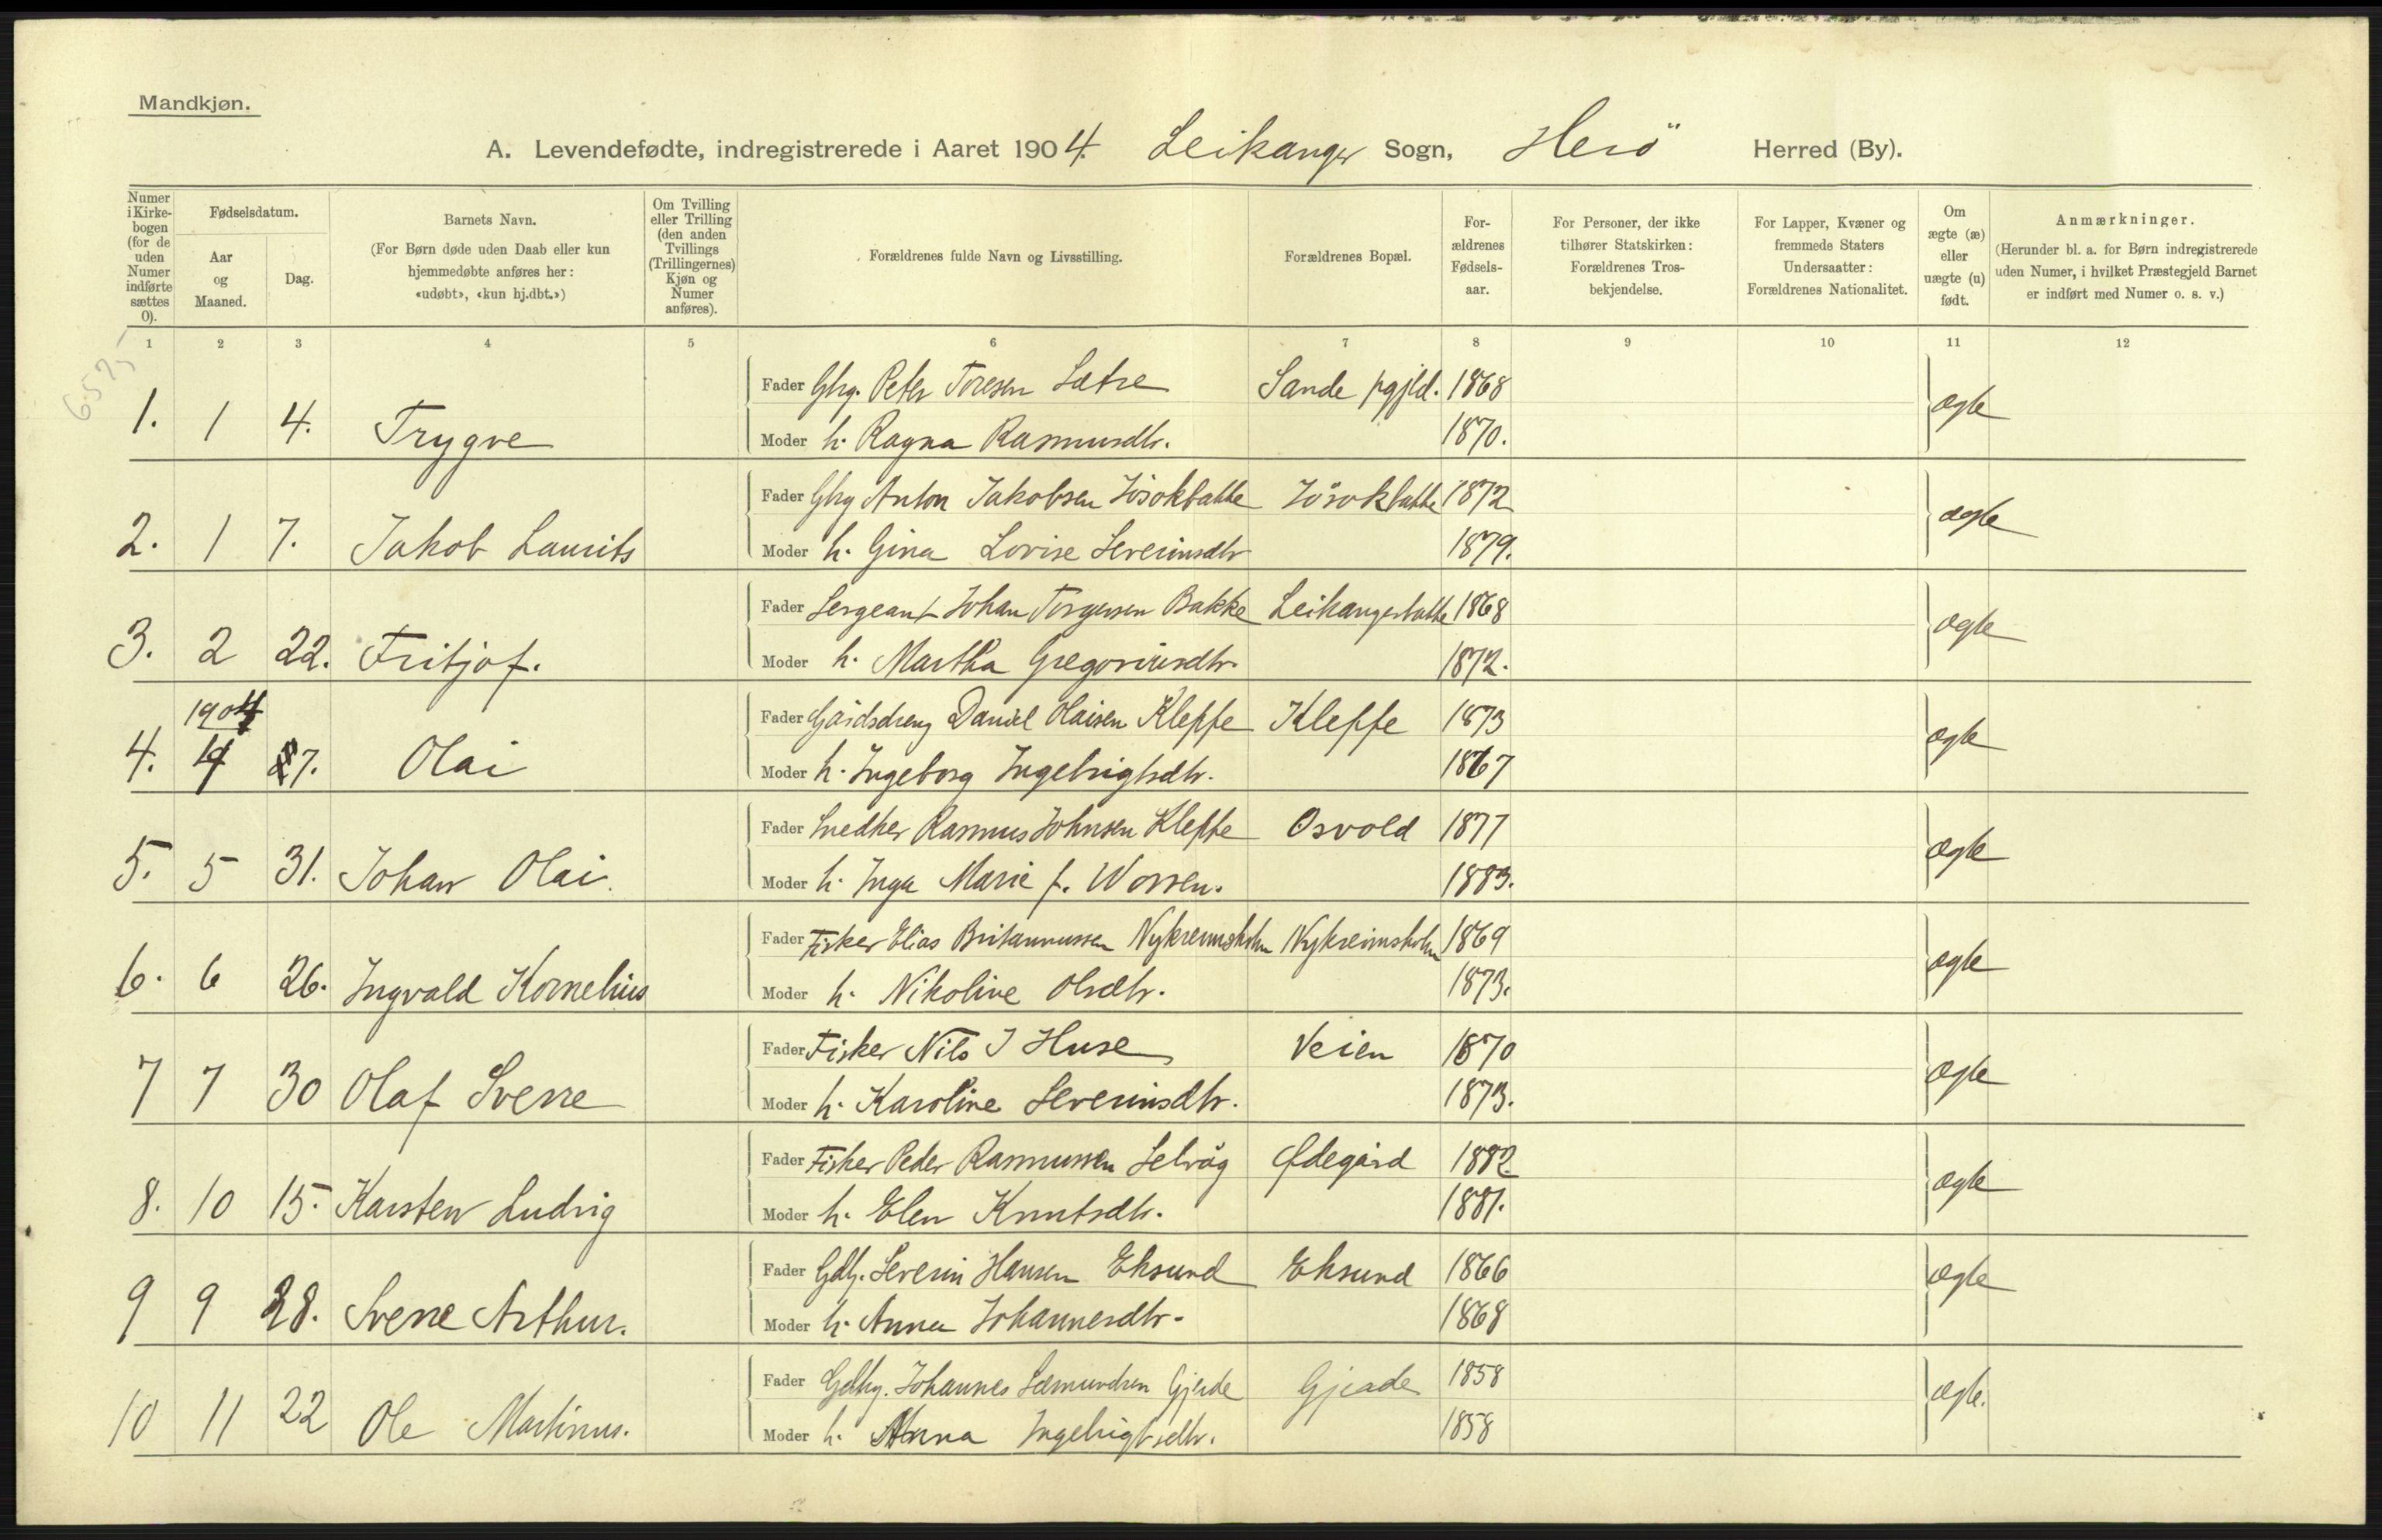 Mandkjøn.
A. Levendefødte, indregistrerede i Aaret 1904. Leikanger Sogn, Herö Herred (By).
Numer i Kirke-bogen (for de uden Numer indførte sættes 0).
Fødselsdatum.
Aar og Maaned.
Dag.
Barnets Navn.
(For Børn døde uden Daab eller kun hjemmedøbte anføres her: «udøbt», «kun hj.dbt.»)
Om Tvilling eller Trilling (den anden Tvillings (Trillingernes) Kjøn og Numer anføres).
Forældrenes fulde Navn og Livsstilling.
Forældrenes Bopæl.
For-ældrenes Fødsels-aar.
For Personer, der ikke tilhører Statskirken: Forældrenes Tros-bekjendelse.
For Lapper, Kvæner og fremmede Staters Undersaatter: Forældrenes Nationalitet.
Om ægte (æ) eller uægte (u) født.
Anmærkninger.
(Herunder bl. a. for Børn indregistrerede uden Numer, i hvilket Præstegjeld Barnet er indført med Numer o. s. v.)
1 2 3 4 5 6 7 8 9 10 11 12
6575
Fader Gbrg. Peter Toresen Sætre Sande pgjld. 1868
1. 1 4. Trygve ægte
Moder h. Ragna Rasmusdtr. 1870.
Fader Gbrg Anton Jakobsen Jösokbakke Jösokbakke 1872
2. 1 7. Jakob Laurits ægte
Moder h. Gina Lovise Severinsdtr 1879.
Fader Sergeant Johan Torgersen Bakke Leikangerbakke 1868
3. 2 22. Fritjof. ægte
Moder h. Martha Gregoriusdtr. 1872.
1904
Fader Gårdsdreng Daniel Olaisen Kleppe Kleppe 1873
4. 4 27. Olai ægte
Moder h. Ingeborg Ingebrigtsdtr. 1867
Fader Snedker Rasmus Johnsen Kleppe Osvold 1877
5. 5 31. Johan Olai. ægte
Moder h. Inga Marie f. Worren. 1883.
Fader Fisker Elias Britannussen Nykreimsholm Nykreimsholm 1869
6. 6 26. Ingvald Kornelius ægte
Moder h. Nikoline Olsdtr. 1873.
Fader Fisker Nils J Huse Veien 1870
7 7 30 Olaf Sverre ægte
Moder h. Karoline Severinsdtr. 1873.
Fader Fisker Peder Rasmussen Selvåg Ødegård 1882
8. 10 15. Karsten Ludvig ægte
Moder h. Elen Knutsdtr. 1881.
Fader Gdbg. Severin Hansen Eksund Eksund 1866
9 9 28. Sverre Arthur. ægte
Moder h. Anna Johannesdtr. 1868
Fader Gdbrg. Johannes Sæmundsen Gjerde Gjerde 1858
10 11 22 Ole Martinus. ægte.
Moder h. Anna Ingebrigtsdtr. 1858